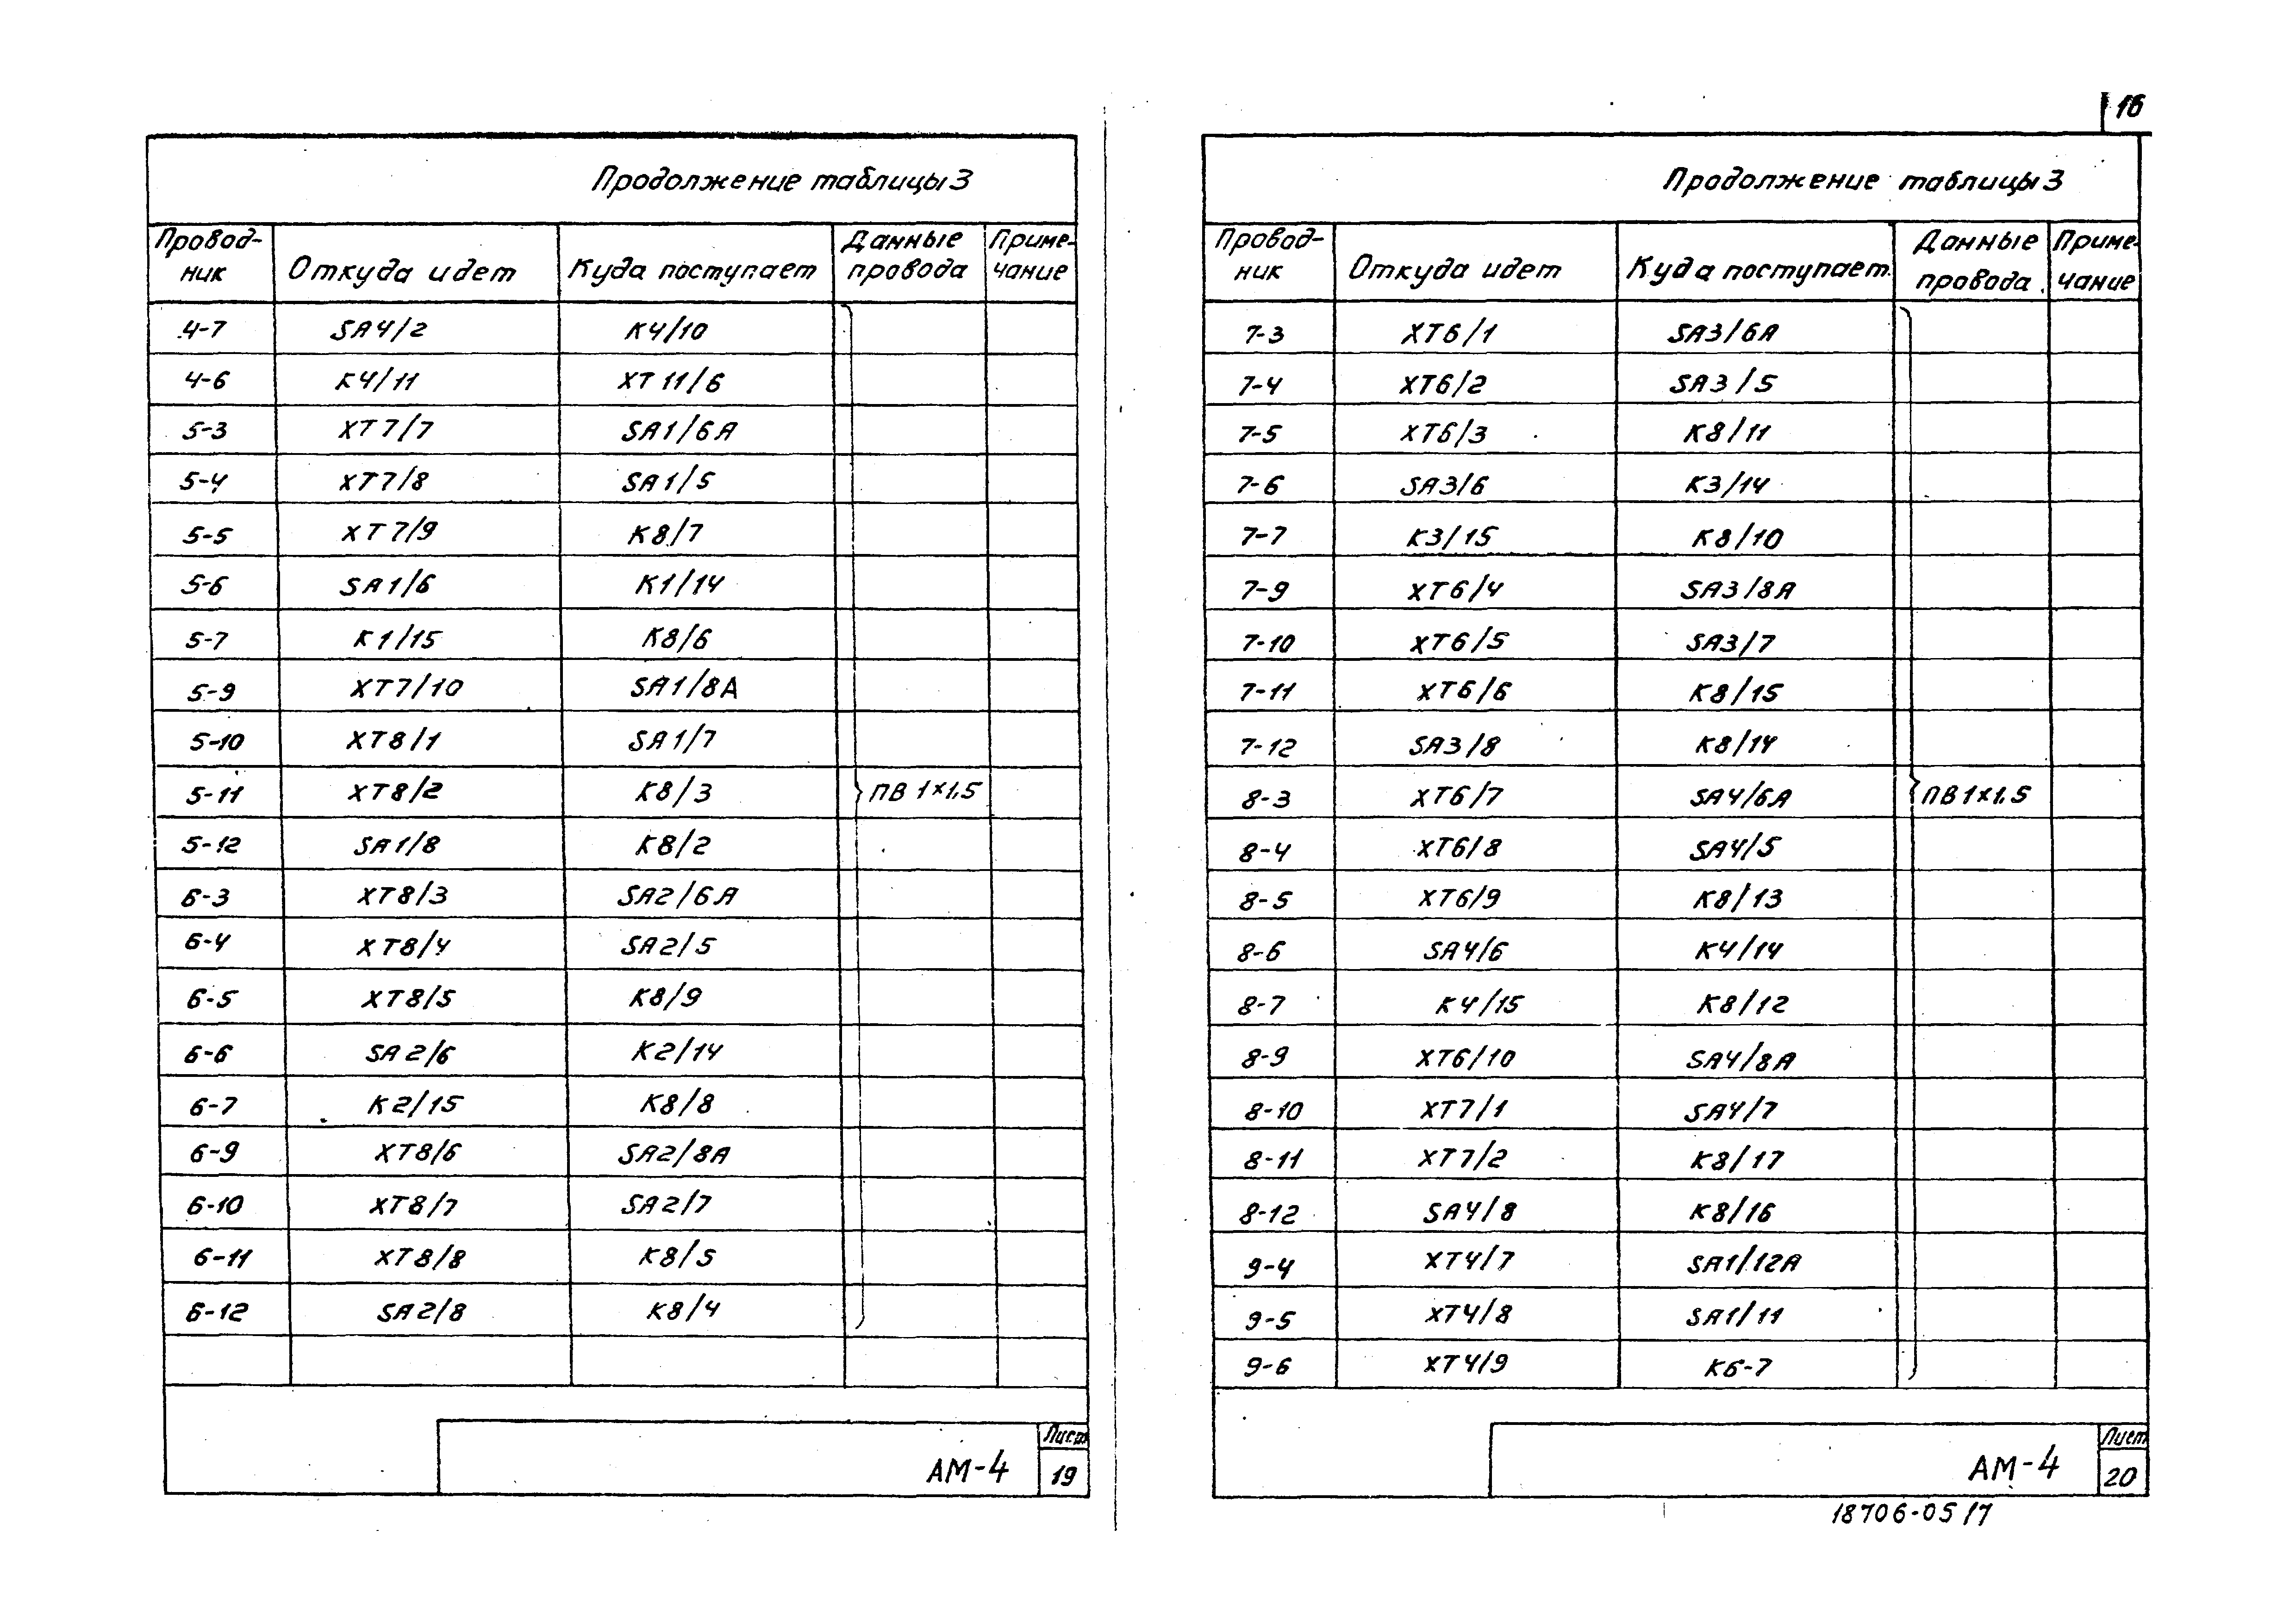 16
Продолжение таблицы 3
Провод-ник Откуда идет Куда поступает Данные провода Приме-чание
4-7 SA4/2 K4/10
4-6 K4/11 XT11/6
5-3 XT7/7 SA1/6A
5-4 XT7/8 SA1/5
5-5 XT7/9 K8/7
5-6 SA1/6 K1/14
5-7 K1/15 K8/6
5-9 XT7/10 SA1/8A
5-10 XT8/1 SA1/7
5-11 XT8/2 K8/3 ПВ 1×1,5
5-12 SA1/8 K8/2
6-3 XT8/3 SA2/6A
6-4 XT8/4 SA2/5
6-5 XT8/5 K8/9
6-6 SA2/6 K2/14
6-7 K2/15 K8/8
6-9 XT8/6 SA2/8A
6-10 XT8/7 SA2/7
6-11 XT8/8 K8/5
6-12 SA2/8 K8/4
АМ-4
Лист
19
Продолжение таблицы 3
Провод-ник Откуда идет Куда поступает Данные провода Приме-чание
7-3 XT6/1 SA3/6A
7-4 XT6/2 SA3/5
7-5 XT6/3 K8/11
7-6 SA3/6 K3/14
7-7 K3/15 K8/10
7-9 XT6/4 SA3/8A
7-10 XT6/5 SA3/7
7-11 XT6/6 K8/15
7-12 SA3/8 K8/14
8-3 XT6/7 SA4/6A ПВ 1×1,5
8-4 XT6/8 SA4/5
8-5 XT6/9 K8/13
8-6 SA4/6 K4/14
8-7 K4/15 K8/12
8-9 XT6/10 SA4/8A
8-10 XT7/1 SA4/7
8-11 XT7/2 K8/17
8-12 SA4/8 K8/16
9-4 XT4/7 SA1/12A
9-5 XT4/8 SA1/11
9-6 XT4/9 K6-7
АМ-4
Лист
20
18706-05 17